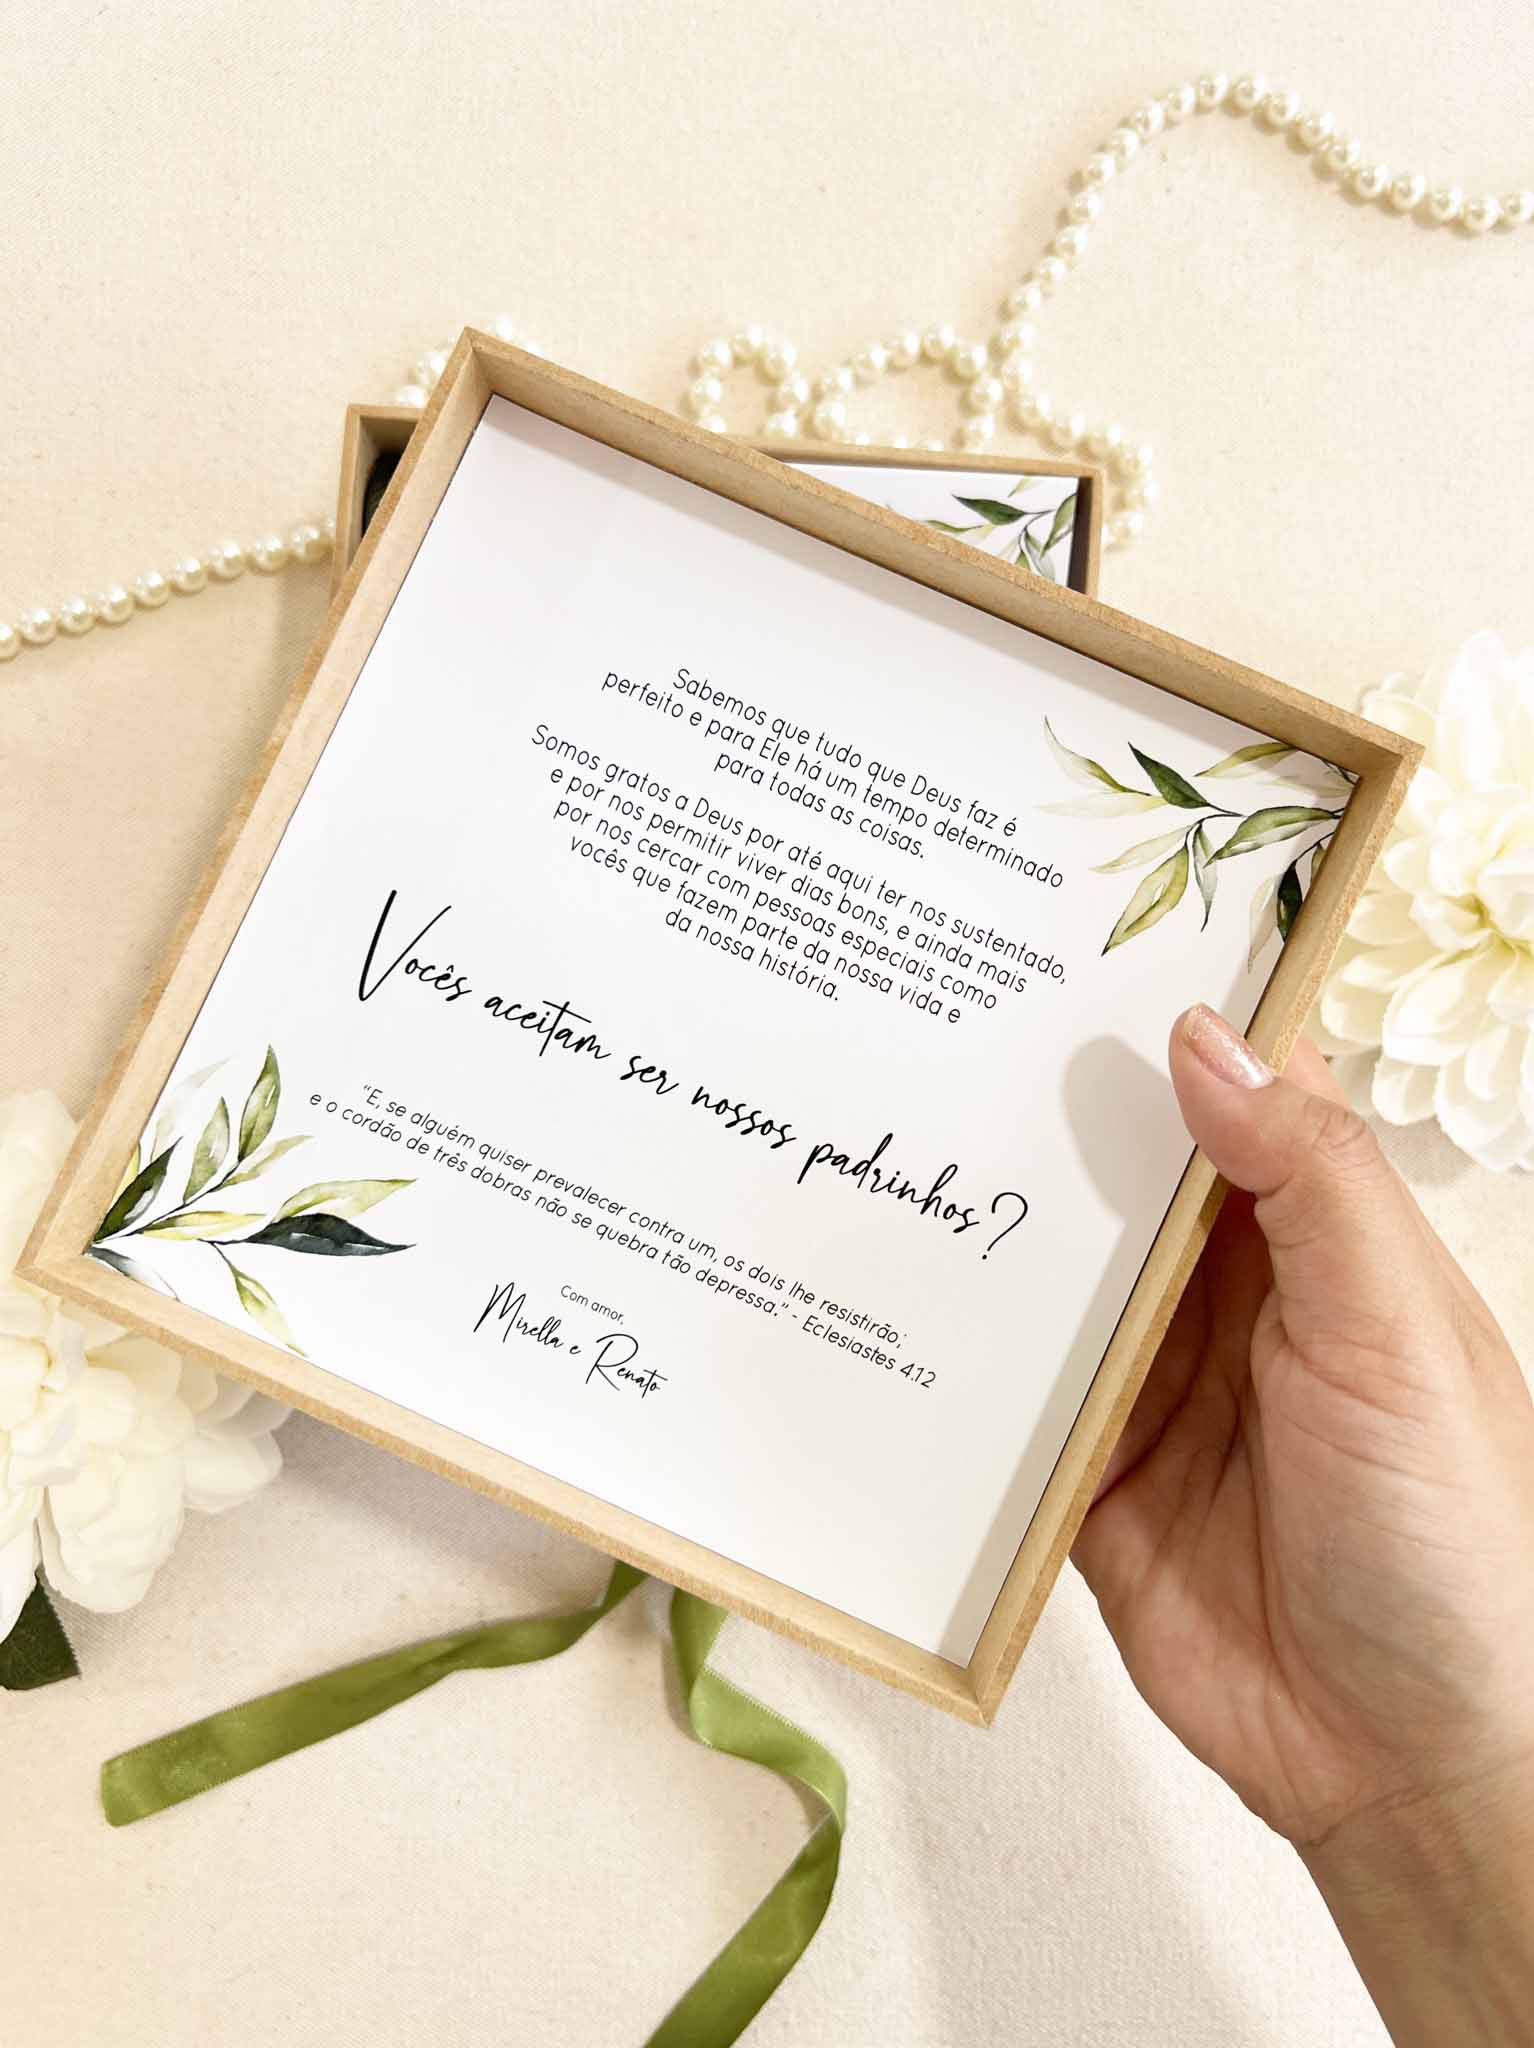 Sabemos que tudo que Deus faz é
perfeito e para Ele há um tempo determinado
para todas as coisas.
Somos gratos a Deus por até aqui ter nos sustentado,
e por nos permitir viver dias bons, e ainda mais
por nos cercar com pessoas especiais como
vocês que fazem parte da nossa vida e
da nossa história.
Vocês aceitam ser nossos padrinhos?
"E, se alguém quiser prevalecer contra um, os dois lhe resistirão;
e o cordão de três dobras não se quebra tão depressa." - Eclesiastes 4.12
Com amor,
Mirella e Renato